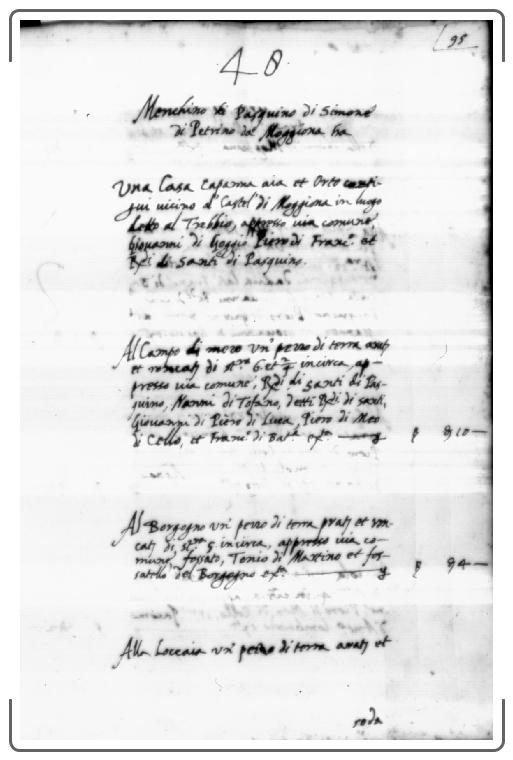 95
48
Menchino di Pasquino di Simone
di Petrino da Moggiona ha
Una Casa capanna aia et Orto conti-
gui vicino al Castel di Moggiona in luogo
detto al Trebbio, appresso via comune,
Giovanni di Goggio Piero di Franc.º et
Rdi di Santi di Pasquino.
Al Campo di mero un' pezzo di terra
et di 6 et incirca, ap-
presso via comune, Rdi di Santi di Pas-
quino, Nanni di Tofano, detti Rdi di Santi,
Giovanni di Piero di Luca, Piero di Meo
di Cello, et Franc.º di Bat.ª
10
Al Borgogno un' pezzo di terra et
di 5 incirca, appresso via co-
mune, fossato, Tonio di Martino et fos-
satello del Borgogno
4
Alla Loccaia un' pezzo di terra et
soda